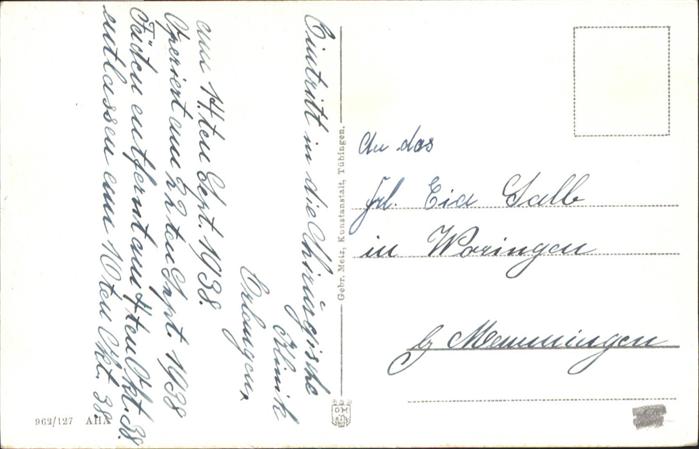 Eintritt in die Chirurgische
Klinik
Erlangen,
am 14ten Sept. 1938.
Operiert am 22ten Sept. 1938
Fäden entfernt am 4ten Okt. 38.
entlassen am 10ten Okt. 38
Gebr. Metz, Kunstanstalt, Tübingen.
An das
Frl. Eia Salb
in Woringen
b/ Memmingen
962/127 AHA